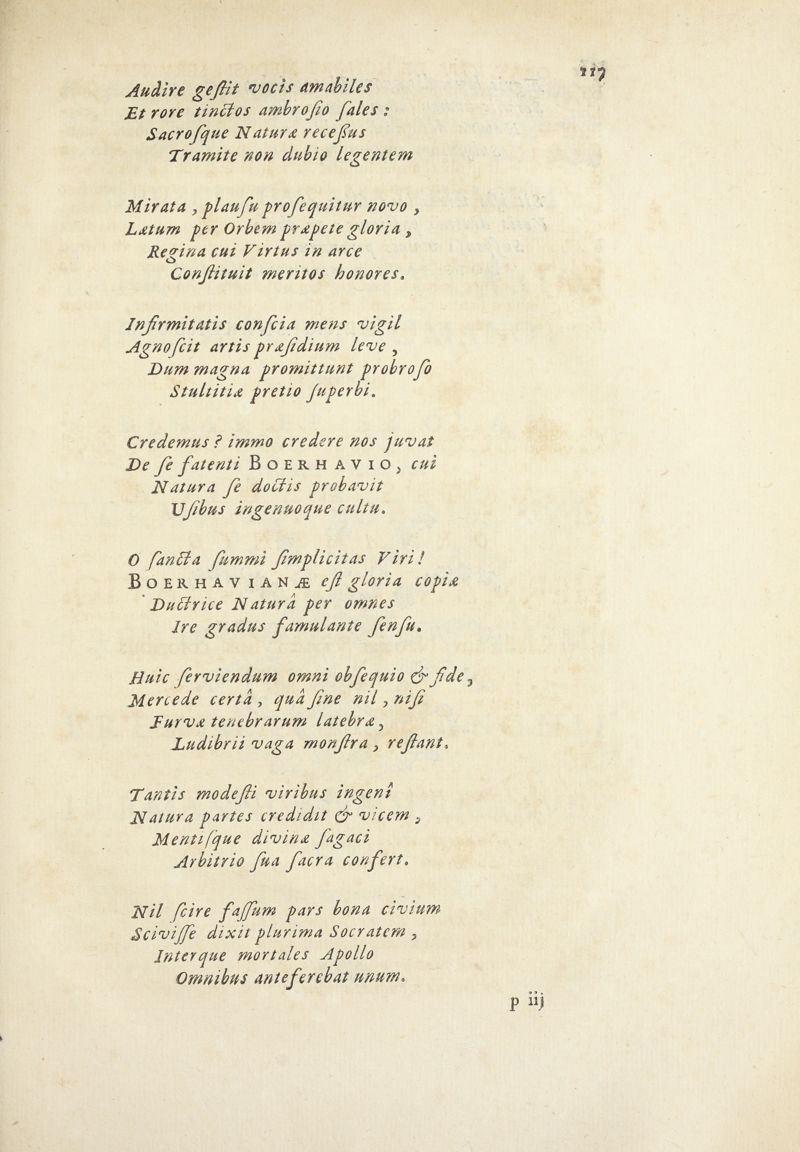 117
Audire geſtit vocis amabiles
Et rore tinctos ambroſio ſales :
Sacroſque Naturæ receſſus
Tramite non dubio legentem
Mirata , plauſu proſequitur novo ,
Lætum per Orbem præpete gloria ,
Regina cui Virtus in arce
Conſtituit meritos honores.
Infirmitatis conſcia mens vigil
Agnoſcit artis præſidium leve ,
Dum magna promittunt probroſo
Stultitiæ pretio ſuperbi.
Credemus ? immo credere nos juvat
De ſe fatenti BOERHAVIO, cui
Natura ſe doctis probavit
Uſibus ingenuoque cultu.
O ſancta ſummi ſimplicitas Viri !
BOERHAVIANÆ eſt gloria copiæ
Ductrice Naturâ per omnes
Ire gradus famulante ſenſu.
Huic ſerviendum omni obſequio & fide,
Mercede certâ , quâ ſine nil , niſi
Furvæ tenebrarum latebræ,
Ludibrii vaga monſtra , reſtant.
Tantis modeſti viribus ingenî
Natura partes credidit & vicem ,
Mentiſque divinæ ſagaci
Arbitrio ſua ſacra confert.
Nil ſcire faſſum pars bona civium
Sciviſſe dixit plurima Socratem ,
Interque mortales Apollo
Omnibus anteferebat unum.
p iij